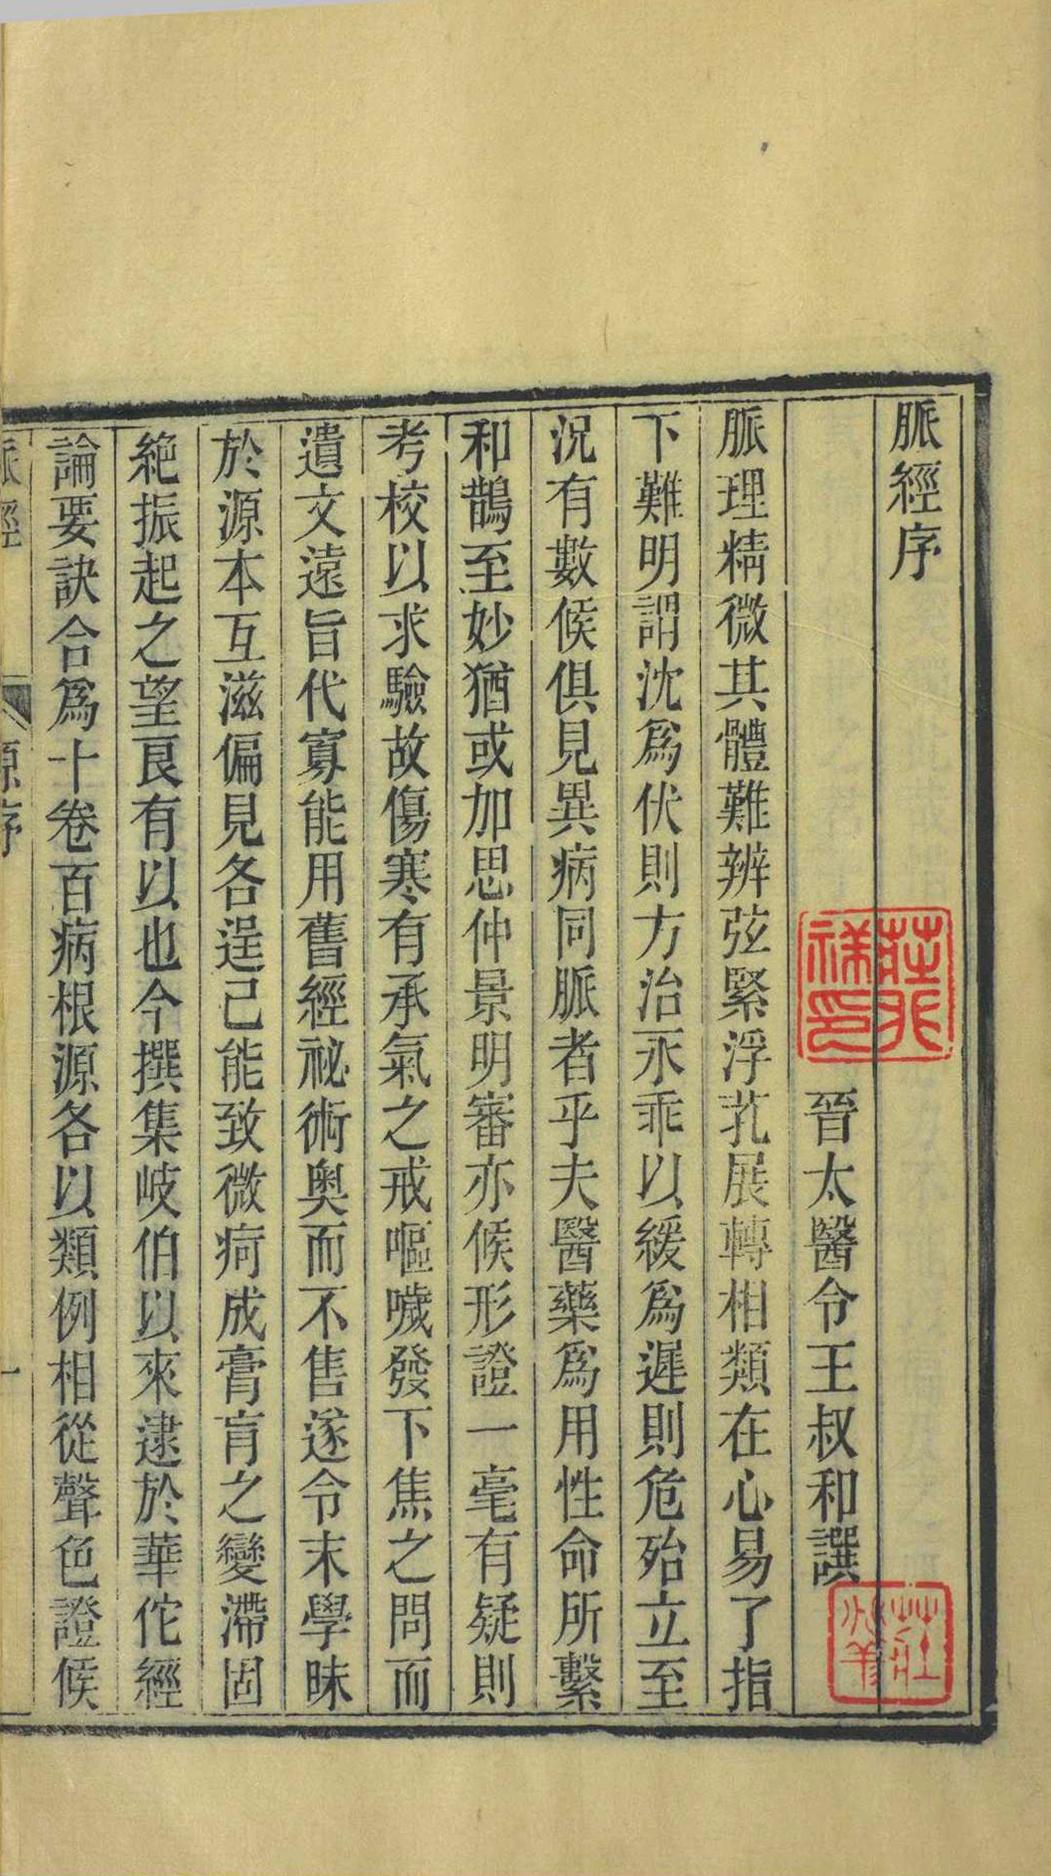 脈經序
晉太醫令王叔和譔
脈理精微其體難辨弦緊浮芤展轉相類在心易了指
下難明謂沈爲伏則方治永乖以緩爲遲則危殆立至
況有數候俱見異病同脈者乎夫醫藥爲用性命所繫
和鵲至妙猶或加思仲景明審亦候形證一毫有疑則
考校以求驗故傷寒有承氣之戒嘔噦發下焦之問而
遺文遠旨代寡能用舊經祕術奧而不售遂令末學昧
於源本互滋偏見各逞己能致微痾成膏肓之變滯固
絶振起之望良有以也今撰集岐伯以來逮於華佗經
論要訣合爲十卷百病根源各以類例相從聲色證候
脈經
原序
一